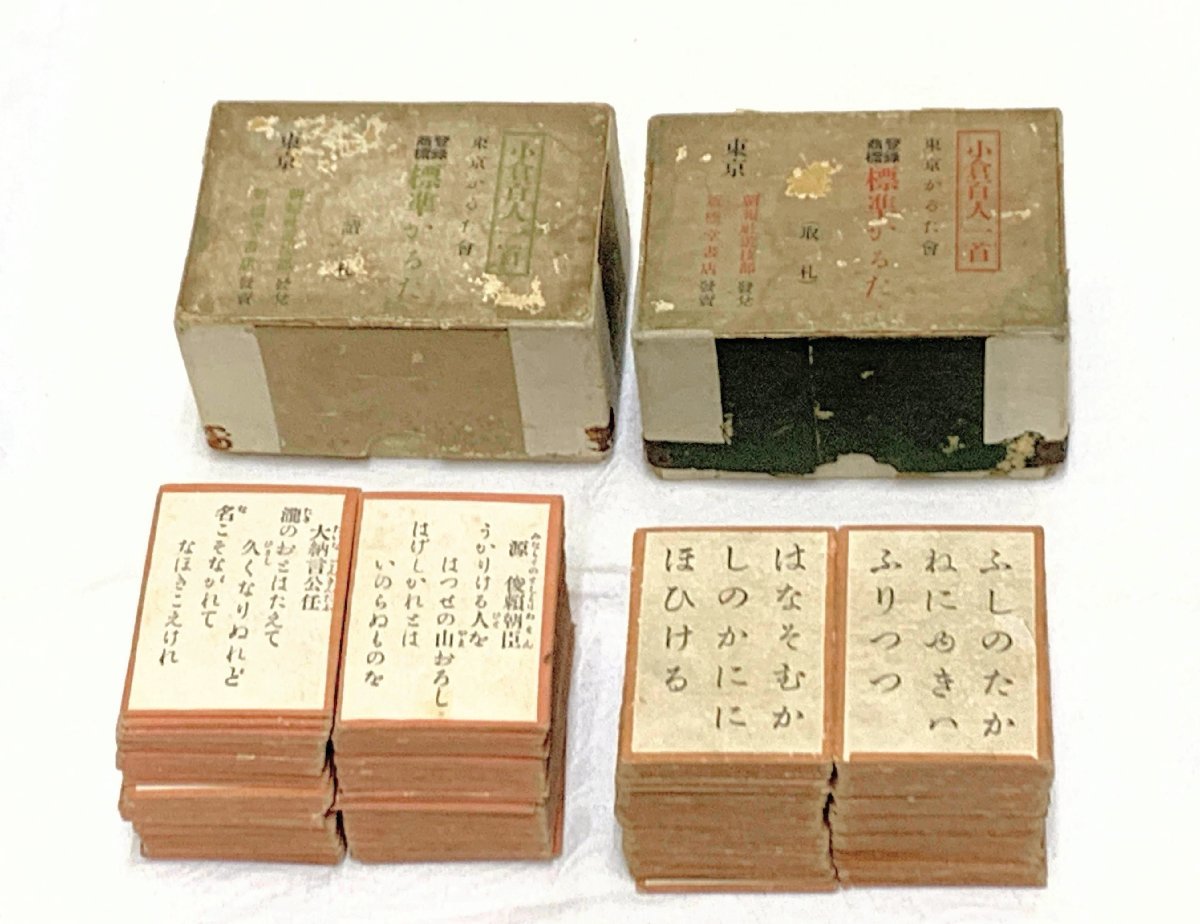 小倉百人一首
東京かるた會
登録商標
標準かるた
讀札
東京
發兌
發賣
小倉百人一首
東京かるた會
登録商標
標準かるた
(取札)
東京
發兌
書店發賣
源俊頼朝臣
うかりける人を
はつせの山おろし
はげしかれとは
いのらぬものを
大納言公任
瀧のおとはたえて
久しくなりぬれど
名こそながれて
なほきこえけれ
ふしのたか
ねにゆきハ
ふりつつ
はなそむか
しのかにに
ほひける